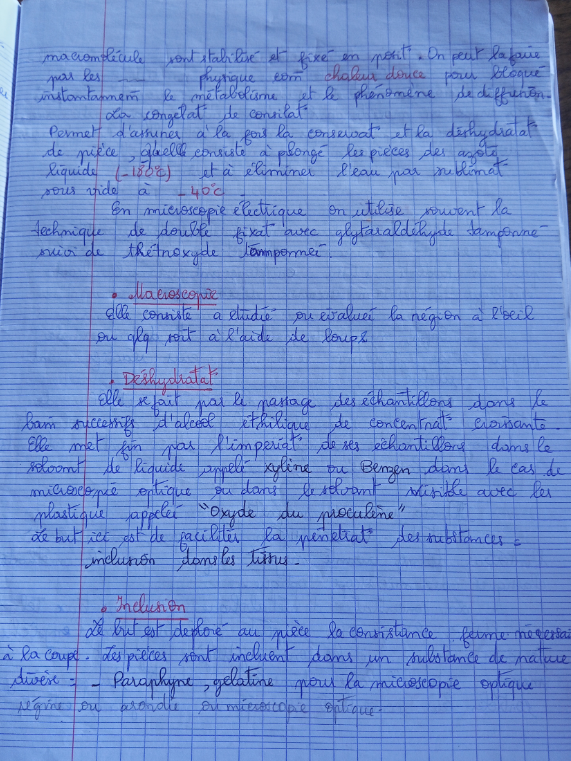 macromolécule sont stabilisé et fixé en point. On peut la faire
par les physique com chaleur douce pour bloque
instantannem le métabolisme et le phénomène de diffusion.
La congelat de consilat
Permet d'assurer à la fois la conservat et la déshydratat
de pièce, quelle consiste à plongé les pièces des azote
liquide (-180°C) et à éliminer l'eau par sublimat
sous vide à -40°C.
En microscopie électrique on utilise souvent la
technique de double fixat avec glytaraldéhyde tamponné
suivi de thétnoxyde tamponneé.
• Macroscopie
Elle consiste a etudié ou evaluer la région à l'oeil
ou qlq soit à l'aide de loupe
• Deshydratat
Elle se fait par le passage des échantillons dans le
bain successifs d'alcool éthilique de concentrat croissante.
Elle met fin par l'imperiat de ses échantillons dans le
solvant de liquide appelé xyline ou Bengen dans le cas de
microscopie optique ou dans le solvant misible avec les
plastique appelée "Oxyde du proculène"
Le but ici est de faciliter la pénétrat des substances =
inclusion dans les tissus.
• Inclusion
Le but est de au pièce la consistance ferme nécessai
à la coupe. Les pièces sont incluent dans un substance de nature
divere = - Paraphyne, gelatine pour la microscopie optique
ou ou microscopie optique.